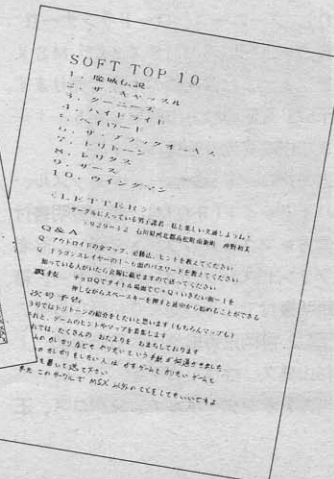 SOFT TOP 10
1. 魔城伝説
2. ザ・キャッスル
3. グーニーズ
4. ハイドライド
5. ペイロード
6. ザ・ブラックオニキス
7. トリトーン
8. レリクス
9. ザース
10. ウイングマン
LETTER
サークルに入っている男子諸君 私と楽しい文通しようね!
石川県河北郡高松町
Q&A
Q. アウトロイドの全マップ、必勝法、ヒントを教えてください
Q. ドラゴンスレイヤーの1~6面のパスワードを教えてください
知っている人がいたら会報に載せますので送ってください
裏技 チョロQでタイトル場面でC+Q+いきたい面-1を
押しながらスペースキーを押すと途中から始めることができる
次号予告
号ではトリトーンの紹介をしたいと思います(もちろんマップも)
それと、ゲームのヒントやマップを募集します
では、たくさんの おたよりを おまちしております
を書いて送って下さい
このサークルで MSX 以外のことをしてもいいですよ